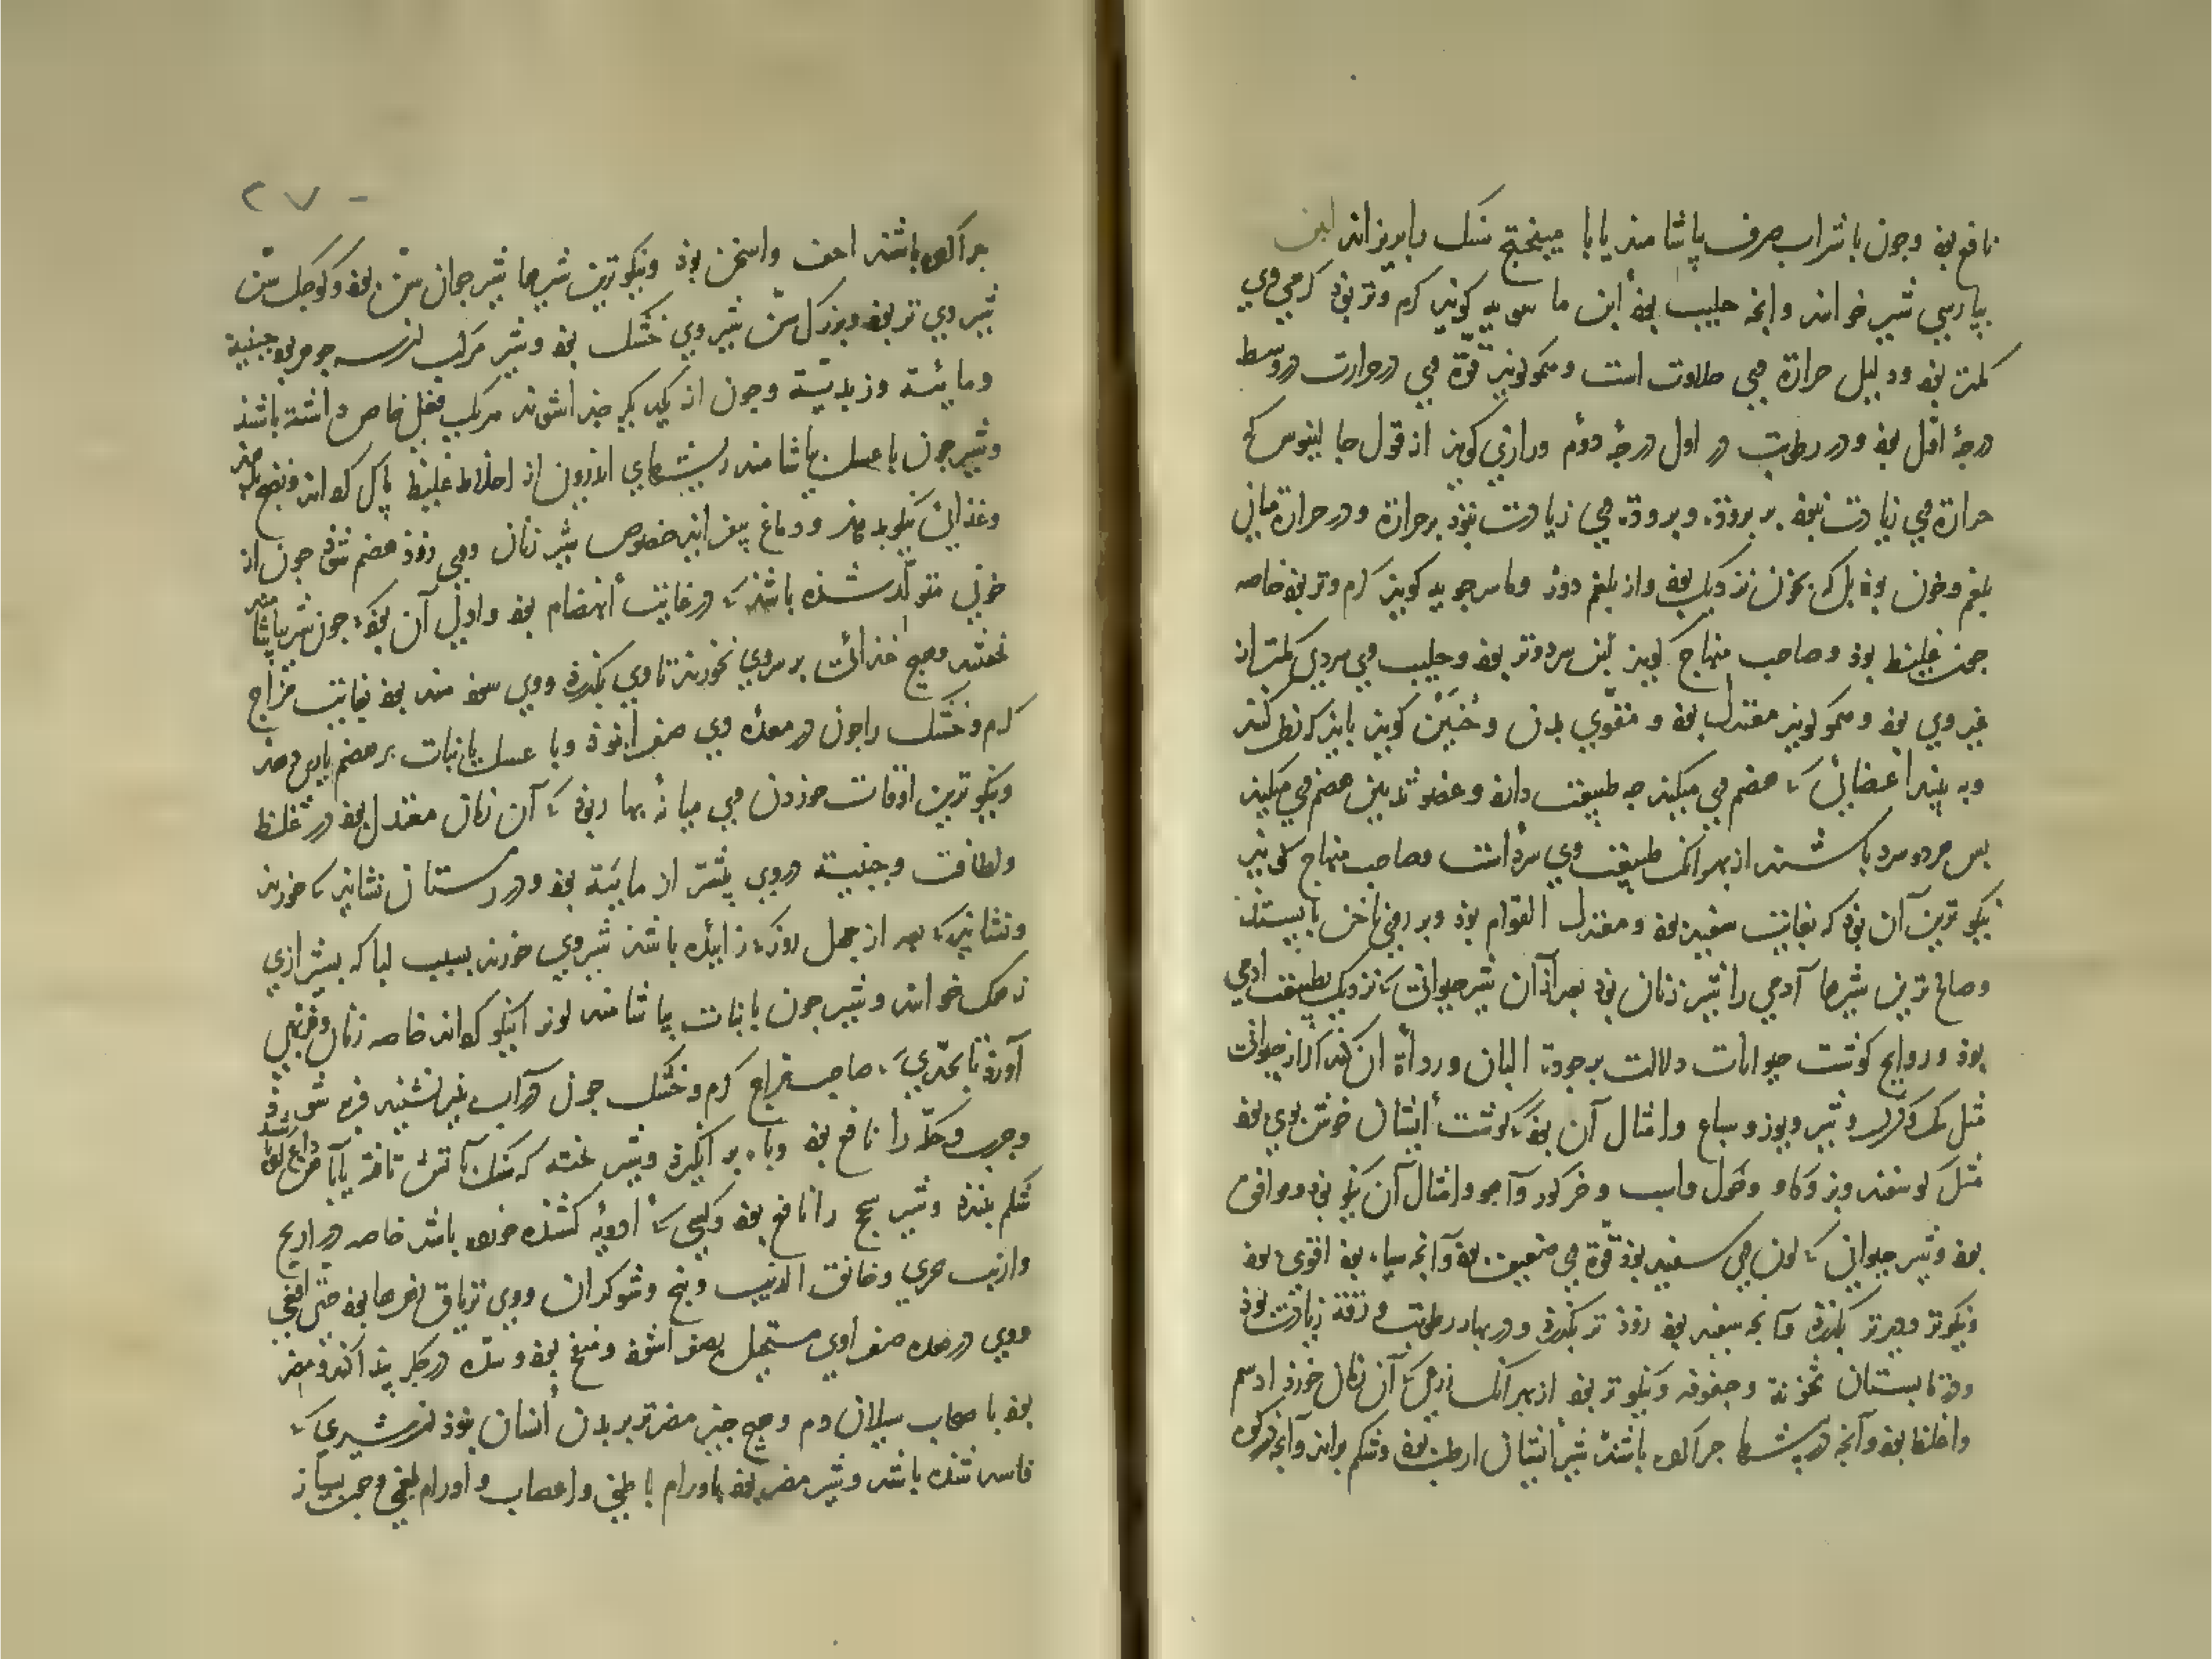 نافع بود و چون با شراب صرف بیاشامند یا با میبختج سنگ بریزاند لبن
بپارسی شیر خوانند و آنچه حلیب بود ابن ماسویه گویند گرم و تر بود گرمی وی
کمتر بود و دلیل حرارة وی حلاوت است و همو گویند قوّة وی در حرارت در وسط
درجهٔ اوّل بود و در رطوبت در اول درجهٔ دوّم و رازی گویند از قول جالینوس که
حرارة وی زیادت نبود بر برودة و برودة وی زیادت نبود بر حرارة و در حرارة میان
بلغم و خون بود بل که بخون نزدیک بود و از بلغم دور و ماسرجویه گویند گرم و تر بود خاصه
چون غلیظ بود و صاحب منهاج گویند لبن سرد و تر بود و حلیب وی سردی کمتر از
غیر وی بود و همو گویند معتدل بود و مقوّی بدن و حُنَین گویند باید که نظر کنند
و به بینند اعضائی که هضم وی میکند چه طبیعت دارد و عضو ثدیین هضم وی میکند
پس هر دو سرد باشند از بهر آنک طبیعت وی سرد است و صاحب منهاج گویند
نیکوترین آن بود که بغایت سفید بود و معتدل القوام بود و بر روی ناخن بایستد
و صالح‌ترین شیرها آدمی را شیر زنان بود بعد از آن شیر حیوانی که نزدیک بطبیعت آدمی
بود و روایح گوشت حیوانات دلالت بر جودة البان و رداءة آن کند اگر از حیوانی
مثل سگ و گرگ و شیر و یوز و سباع و امثال آن بود که گوشت ایشان خوش بوی بود
مثل گوسفند و بز و گاو و فحول و اسب و خر گور و آهو و امثال آن نیکو بود و موافق
بود و شیر حیوانی که لون وی سفید بود قوّة وی ضعیف بود و آنچه سیاه بود اقوی بود
و نیکوتر و دیرتر بگذرد و آنچه سفید بود زودتر بگذرد و در بهار رطوبت و رقة زیادت بود
و در تابستان سخونة و جفوفة و نیکوتر بود از بهر آنک زرعی که آن زمان خورد ادسم
و اغلظ بود و آنچه در بیشها چرا کرده باشند شیر ایشان ارطب بود و شکم براند و آنچه در کوه
۲۷۰
چرا کرده باشند اجف و اسخن بود و نیکوترین شیرها شیر جوان سنّ بود و کوچک سنّ
شیر وی تر بود و بزرک سنّ شیر وی خشک بود و شیر مرکب از سه جوهر بود جبنیة
و مائیّة و زبدیّة و چون از یکدیگر جدا شوند هر یک فعل خاص داشته باشند
و شیر چون با عسل بیاشامند ریشهای اندرون از اخلاط غلیظ پاک گرداند و نضج بدهد
و غذائی نیکو بدهد و دماغ بیفزاید خصوص شیر زنان و وی زود هضم شود چون از
خونی متولّد شده باشد که در غایت انهضام بود و اولی آن بود که چون شیر بیاشامند
نخسبند و هیچ غذائی بر سر وی نخورند تا وی بگذرد و وی سودمند بود بغایت مزاج
گرم و خشک را چون در معده وی صفرا نبود و با عسل یا نبات بر هضم یاری دهد
و نیکوترین اوقات خوردن وی میانهٔ بهار بود که آن زمان معتدل بود در غلظ
و لطافت و جبنیة در وی بیشتر از مائیّة بود و در زمستان نشاید که خورند
و نشاید که بعد از چهل روز که زائیده باشد شیر وی خورند بسبب لبا که بشیرازی
زهک خوانند و شیر چون با نبات بیاشامند لون را نیکو گرداند خاصه زنان و فربهی
آورد تا بحدّی که صاحب مزاج گرم و خشک چون در آب شیر نشیند فربه شود
و جرب و حکّه را نافع بود و باه برانگیزد و شیر پخته که سنک آتش تافته یا با آهن داغ کرده باشد
شکم ببندد و شیر سحج را نافع بود و کسی که ادویهٔ کشنده خورده باشد خاصه ذراریح
و ارنب بحری و خانق الذئب و بنج و شوکران و وی تریاق زهرها بود حتّی افعی
و وی در معده صفراوی مستحیل بصفرا شود و نفخ بود و سدّه در جگر پیدا کند و مضر
بود با صحاب سیلان دم و هیچ چیز مضرتر بر بدن انسان نبود از شیری که
فاسد شده باشد و شیر مضر بود باورام باطن و اعصاب و اورام بلغمی و چون بسیار